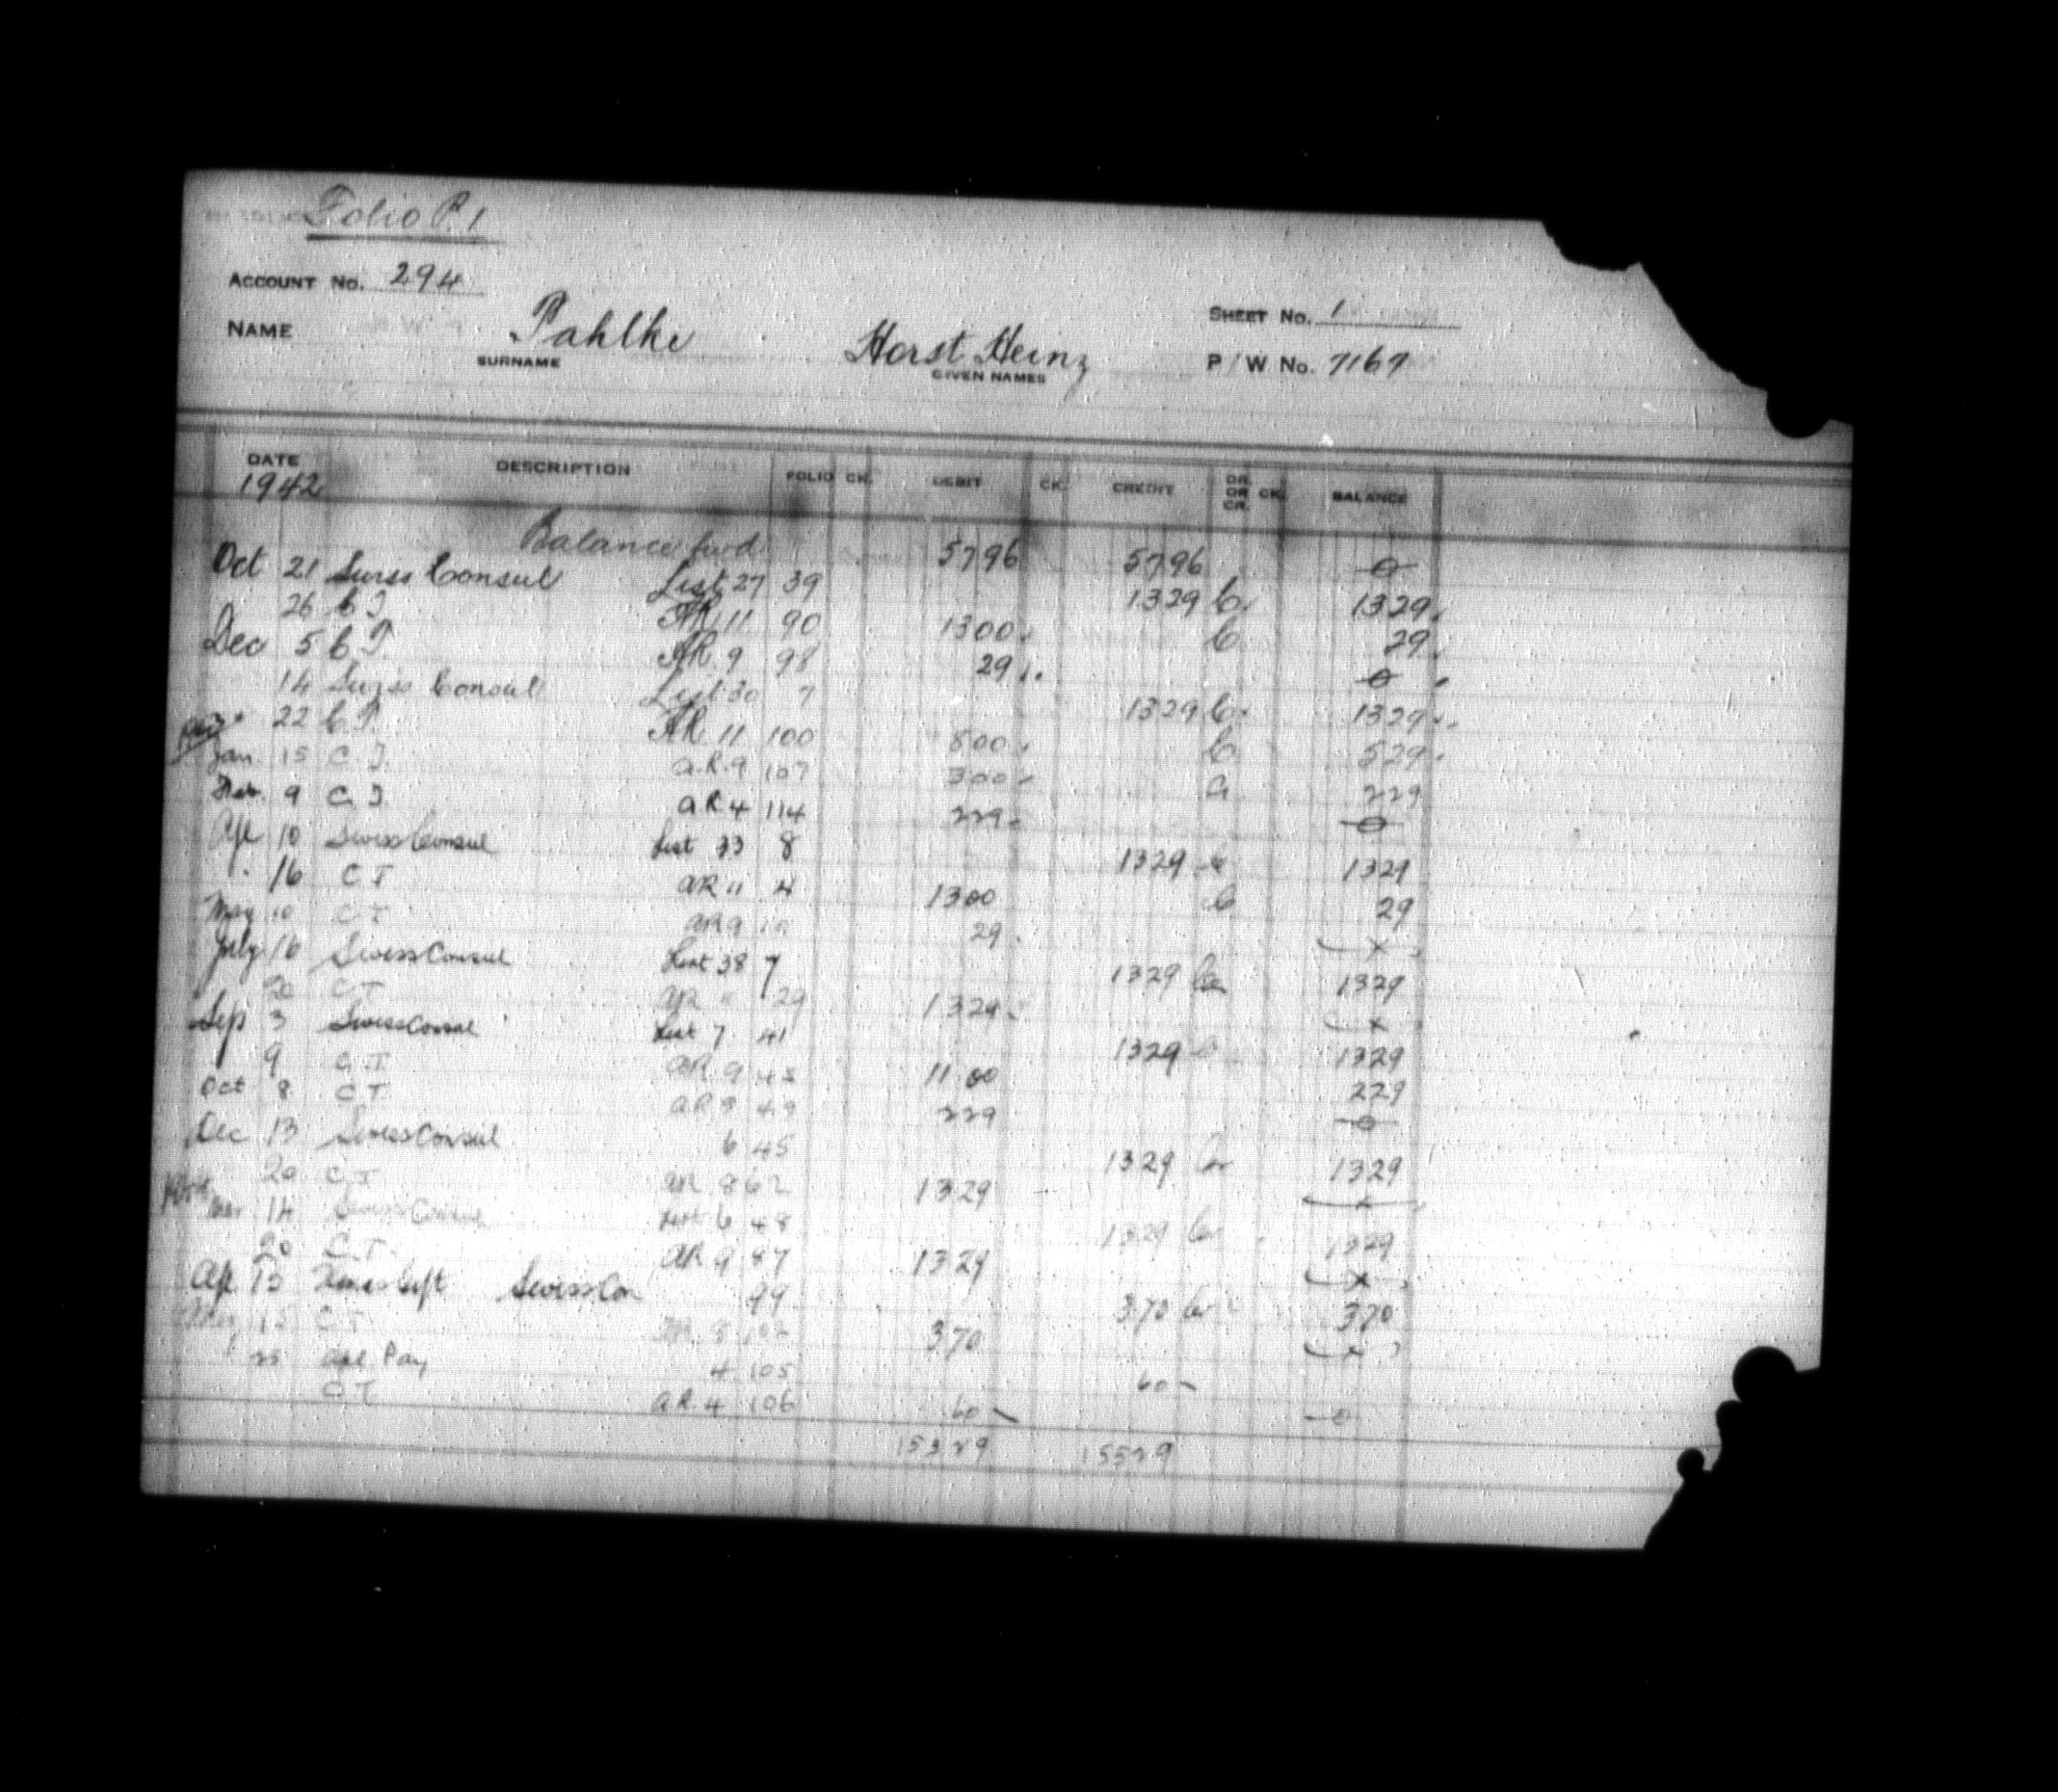 Folio P. 1
ACCOUNT No. 294
SHEET No. 1
NAME Pahlke Horst Heinz
SURNAME GIVEN NAMES
P/W No. 7167
DATE DESCRIPTION FOLIO CK. DEBIT CK. CREDIT DR. OR CR. CK. BALANCE
1942
Balance fwd. 5796 5796 0
Oct 21 Swiss Consul List 27 39 1329 C. 1329
26 C T AR 11 90 1300 C. 29
Dec 5 C T. AR. 9 98 29 0
14 Swiss Consul List 30 7 1329 C. 1329
22 C T. AR 11 100 800 C. 529
Jan. 15 C. T. A.R. 9 107 300 229
Feb. 9 C. T AR 4 114 229 0
Apl 10 Swiss Consul List 33 8 1329 1329
16 C T AR 11 4 1300 C 29
May 10 C T AR 9 29 x
July 16 Swiss Consul List 38 7 1329 Cr 1329
20 C T AR 29 1329 x
Sep 3 Swiss Consul List 7 41 1329 1329
9 C. T AR 9 45 11 00 229
Oct 8 C T AR 9 49 229 0
Dec 13 Swiss Consul 6 45 1329 Cr 1329
20 C T AR 8 62 1329 x
1944 Mar 14 Swiss Consul List 6 48 1329 Cr 1329
20 C. T. AR 9 87 1329 x
Apl 13 Swiss Con 99 370 Cr 370
15 C T AR 8 102 370 x
25 Apl Pay 4 105 60
C T AR. 4 106 60 0
15529